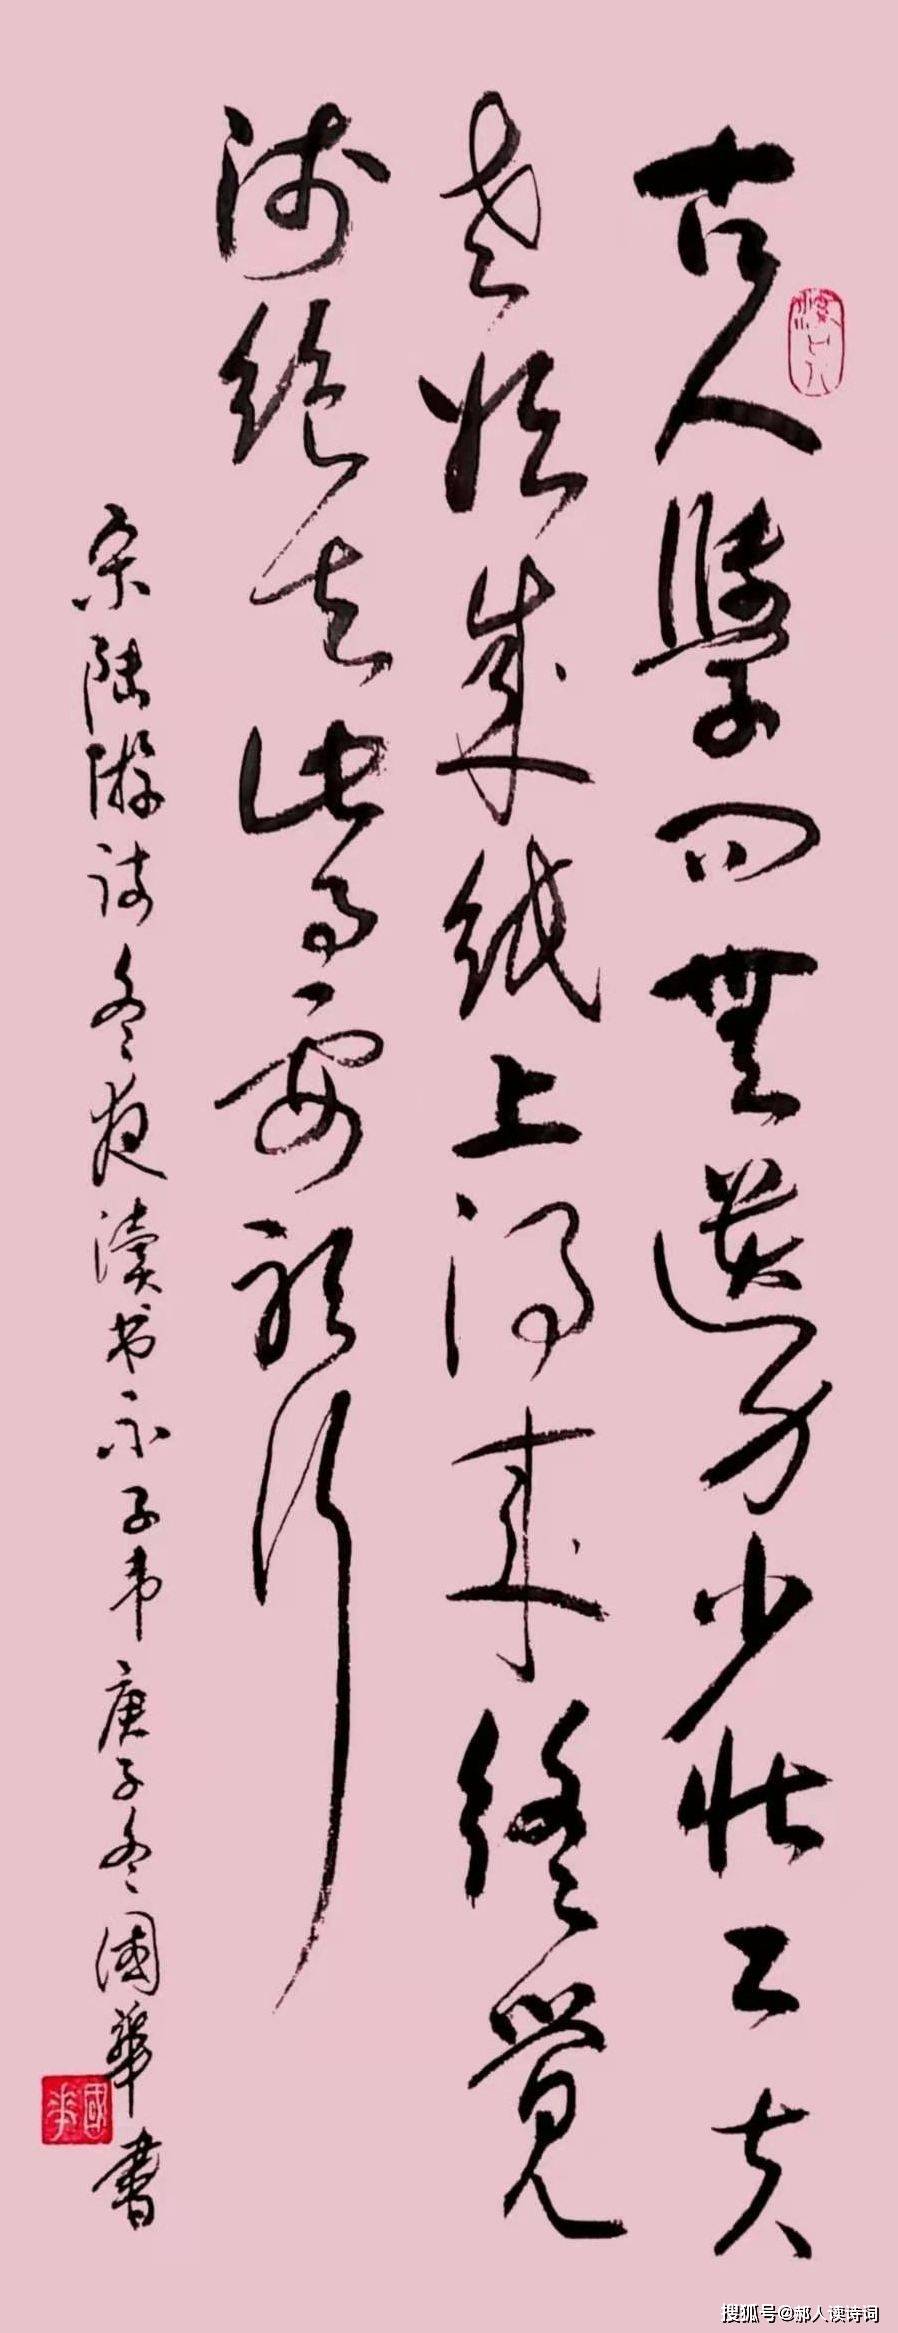 古人學问無遗力少壮工夫
老始成纸上得来终觉
浅绝知此事要躬行
宋陆游诗冬夜读书示子聿庚子冬国華書
國華
搜狐号@郝人读诗词